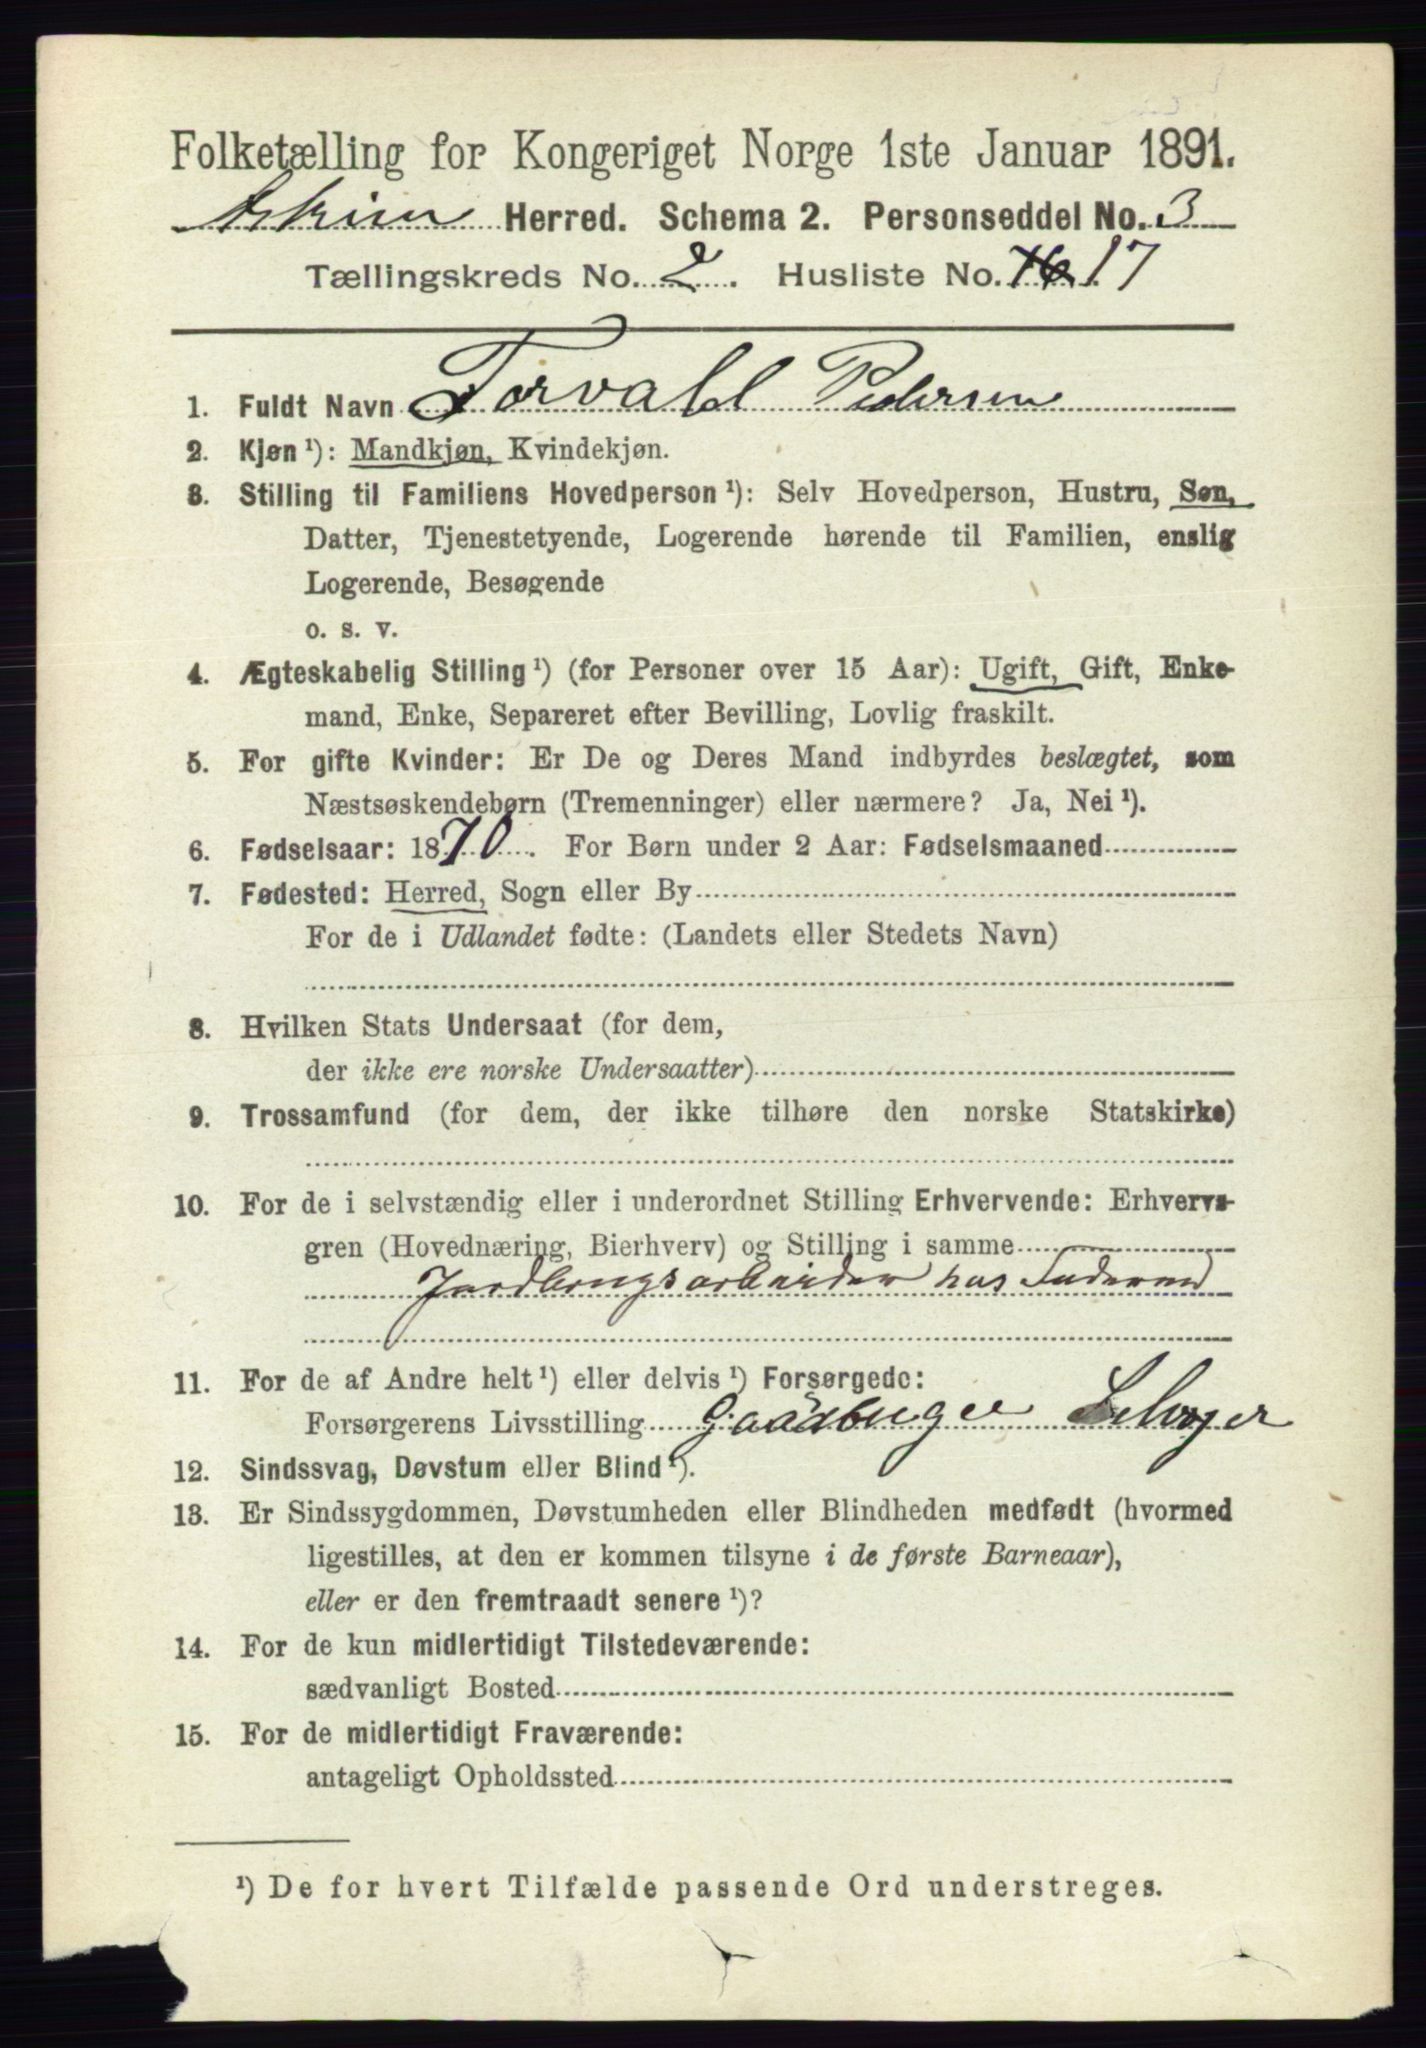 Folketælling for Kongeriget Norge 1ste Januar 1891.
Askim Herred. Schema 2. Personseddel No. 3
Tællingskreds No. 2. Husliste No. 16 17
1. Fuldt Navn Torvald Pedersen
2. Kjøn ¹): Mandkjøn, Kvindekjøn.
3. Stilling til Familiens Hovedperson ¹): Selv Hovedperson, Hustru, Søn,
Datter, Tjenestetyende, Logerende hørende til Familien, enslig
Logerende, Besøgende
o. s. v.
4. Ægteskabelig Stilling ¹) (for Personer over 15 Aar): Ugift, Gift, Enke-
mand, Enke, Separeret efter Bevilling, Lovlig fraskilt.
5. For gifte Kvinder: Er De og Deres Mand indbyrdes beslægtet, som
Næstsøskendebørn (Tremenninger) eller nærmere? Ja, Nei ¹).
6. Fødselsaar: 1870. For Børn under 2 Aar: Fødselsmaaned
7. Fødested: Herred, Sogn eller By
For de i Udlandet fødte: (Landets eller Stedets Navn)
8. Hvilken Stats Undersaat (for dem,
der ikke ere norske Undersaatter)
9. Trossamfund (for dem, der ikke tilhøre den norske Statskirke)
10. For de i selvstændig eller i underordnet Stilling Erhvervende: Erhvervs-
gren (Hovednæring, Bierhverv) og Stilling i samme
Jordbrugsarbeider hos Faderen
11. For de af Andre helt ¹) eller delvis ¹) Forsørgede:
Forsørgerens Livsstilling Gaardbuger Selveger
12. Sindssvag, Døvstum eller Blind ¹).
13. Er Sindssygdommen, Døvstumheden eller Blindheden medfødt (hvormed
ligestilles, at den er kommen tilsyne i de første Barneaar),
eller er den fremtraadt senere ¹)?
14. For de kun midlertidigt Tilstedeværende:
sædvanligt Bosted
15. For de midlertidigt Fraværende:
antageligt Opholdssted
¹) De for hvert Tilfælde passende Ord understreges.